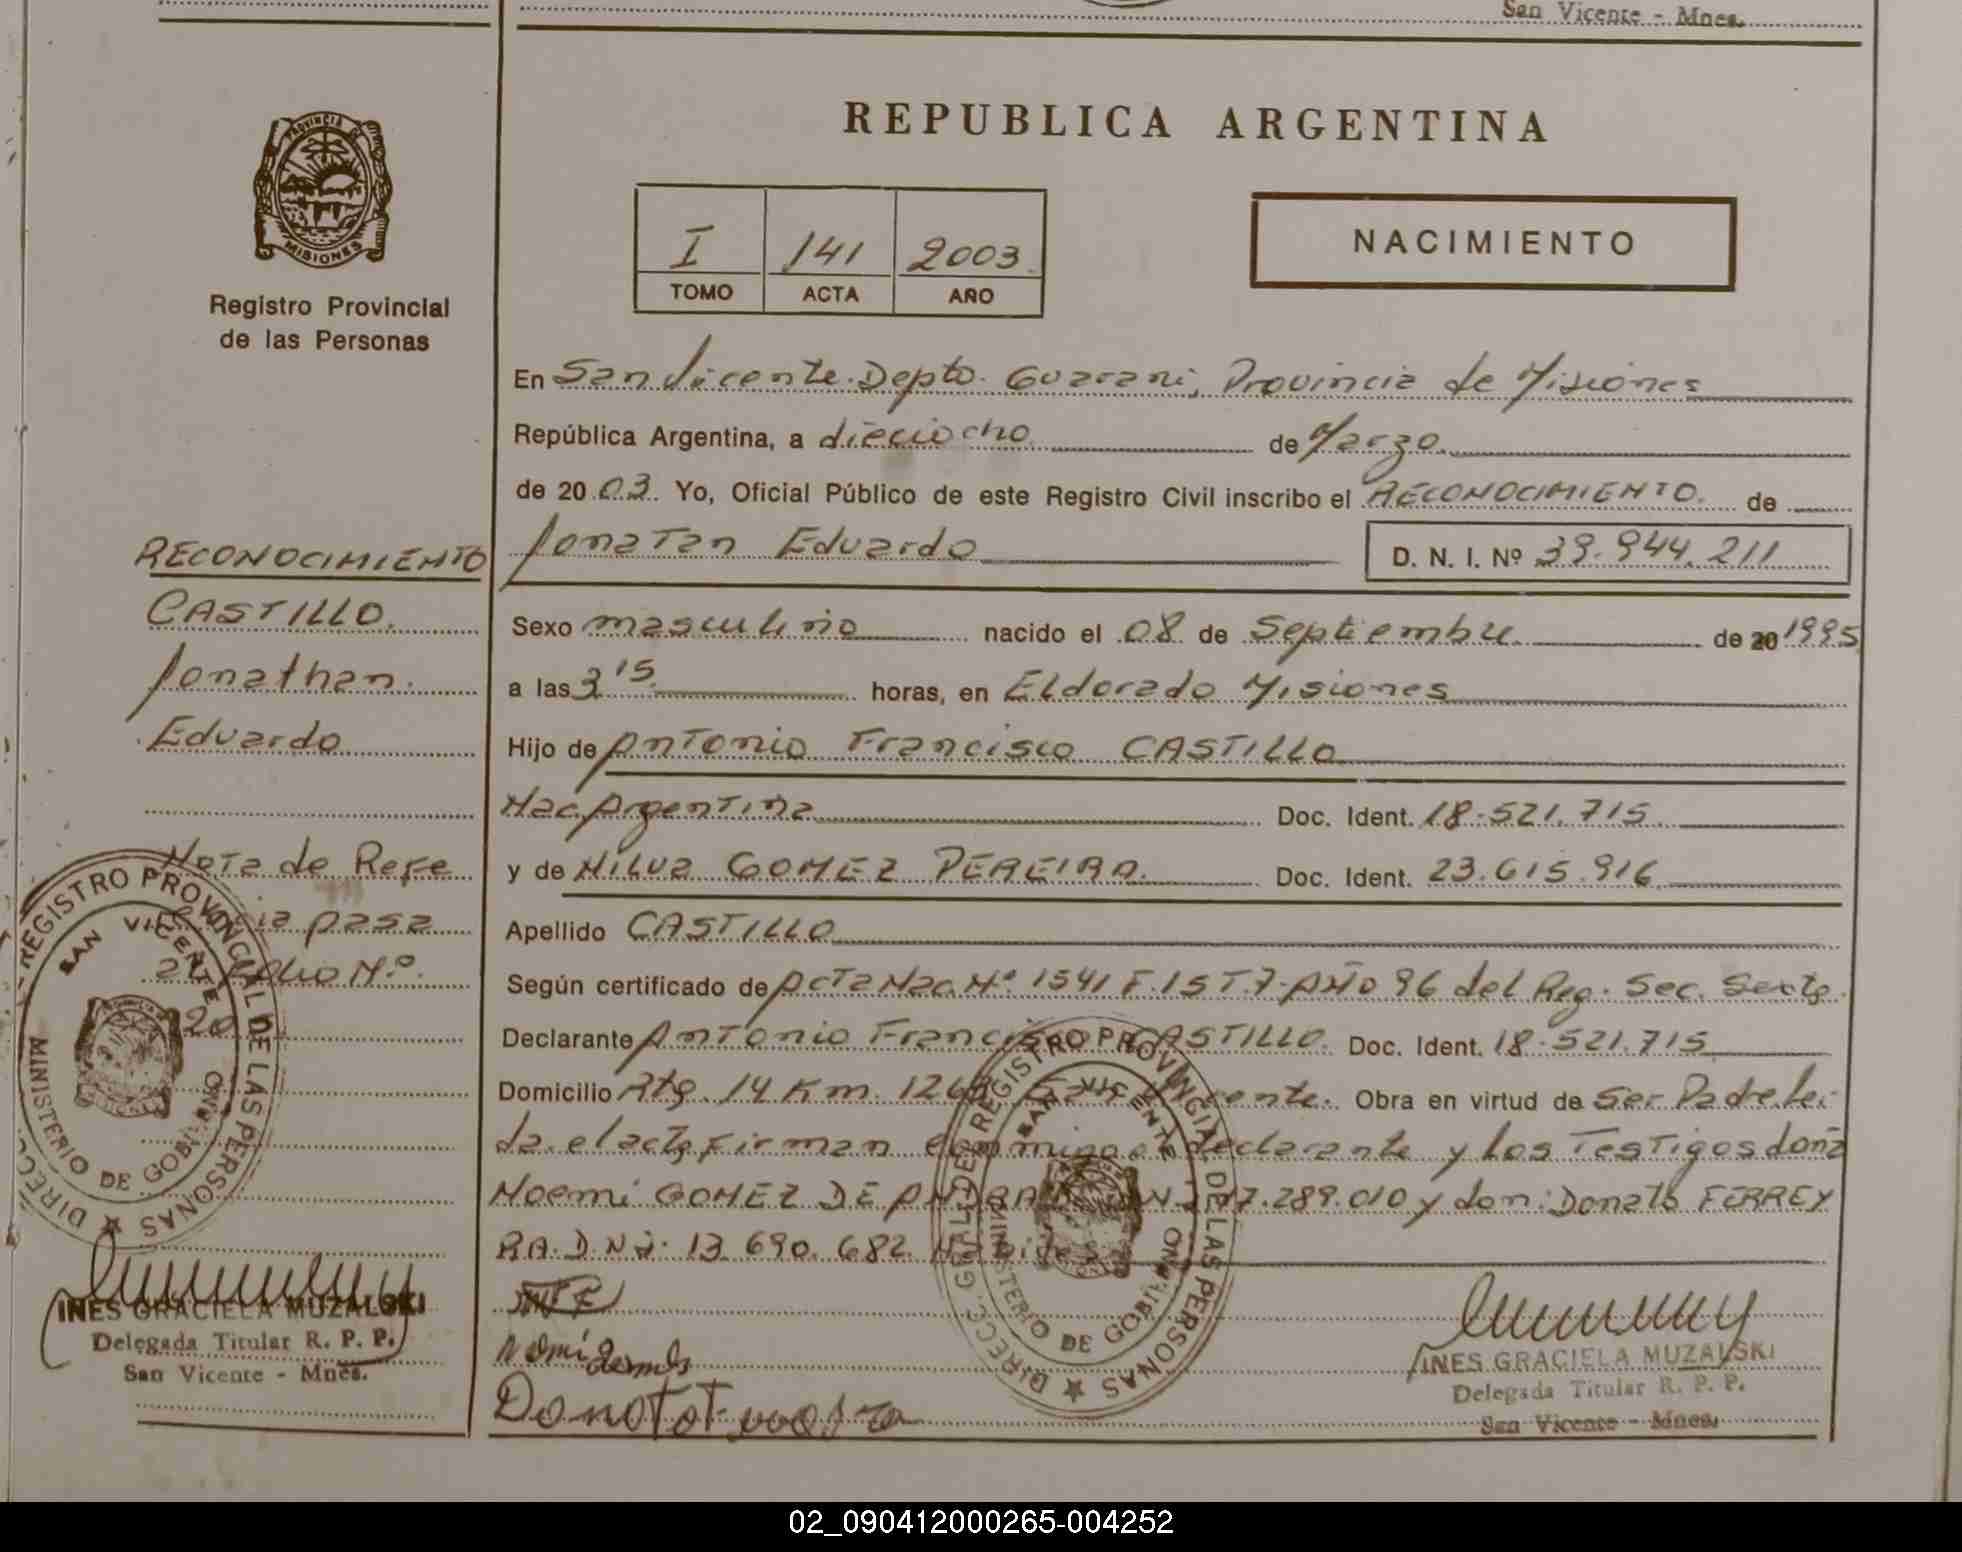 San Vicente - Mnes.
REPUBLICA ARGENTINA
PROVINCIA DE
MISIONES
Registro Provincial
de las Personas
I 141 2003
TOMO ACTA AÑO
NACIMIENTO
En San Vicente. Depto. Guarani, Provincia de Misiones
República Argentina, a dieciocho de Marzo
de 20 03. Yo, Oficial Público de este Registro Civil inscribo el RECONOCIMIENTO. de
Jonatan Eduardo D. N. I. Nº 39.944.211
Sexo masculino nacido el 08 de Septiembre de 20 1995
a las 3 15 horas, en Eldorado Misiones
Hijo de Antonio Francisco CASTILLO
Nac. Argentina Doc. Ident. 18.521.715
y de Nilva GOMEZ PEREIRA. Doc. Ident. 23.615.916
Apellido CASTILLO
Según certificado de Acta Nac. Nº 1541 F. 15 T. 7. AÑO 96 del Reg. Sec. Sexta.
Declarante Antonio Francisco CASTILLO. Doc. Ident. 18.521.715
Domicilio Rta. 14 Km. San Vicente. Obra en virtud de Ser Padre. Lei
da el acta Firman conmigo el declarante y los Testigos doña
Noemi GOMEZ DE 289.010 y don: Donato FERREY
RA. D.N.I. 13 690. 682
Donato
INES GRACIELA MUZALSKI
Delegada Titular R. P. P.
San Vicente - Mnes.
RECONOCIMIENTO
CASTILLO.
Jonathan.
Eduardo
Nota de Refe
rencia pasa
Folio Nº.
20
DIRECC. GRAL. DE REGISTRO PROVINCIAL DE LAS PERSONAS
SAN VICENTE
MINISTERIO DE GOBIERNO
INES GRACIELA MUZALSKI
Delegada Titular R. P. P.
San Vicente - Mnes.
DIRECC. GRAL. DE REGISTRO PROVINCIAL DE LAS PERSONAS
SAN VICENTE
MINISTERIO DE GOBIERNO
02_090412000265-004252